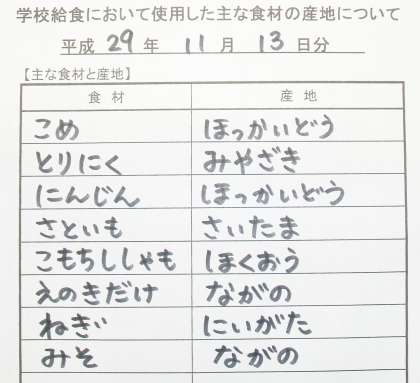 学校給食において使用した主な食材の産地について
平成 29 年 11 月 13 日分
【主な食材と産地】
食材 産地
こめ ほっかいどう
とりにく みやざき
にんじん ほっかいどう
さといも さいたま
こもちししゃも ほくおう
えのきだけ ながの
ねぎ にいがた
みそ ながの